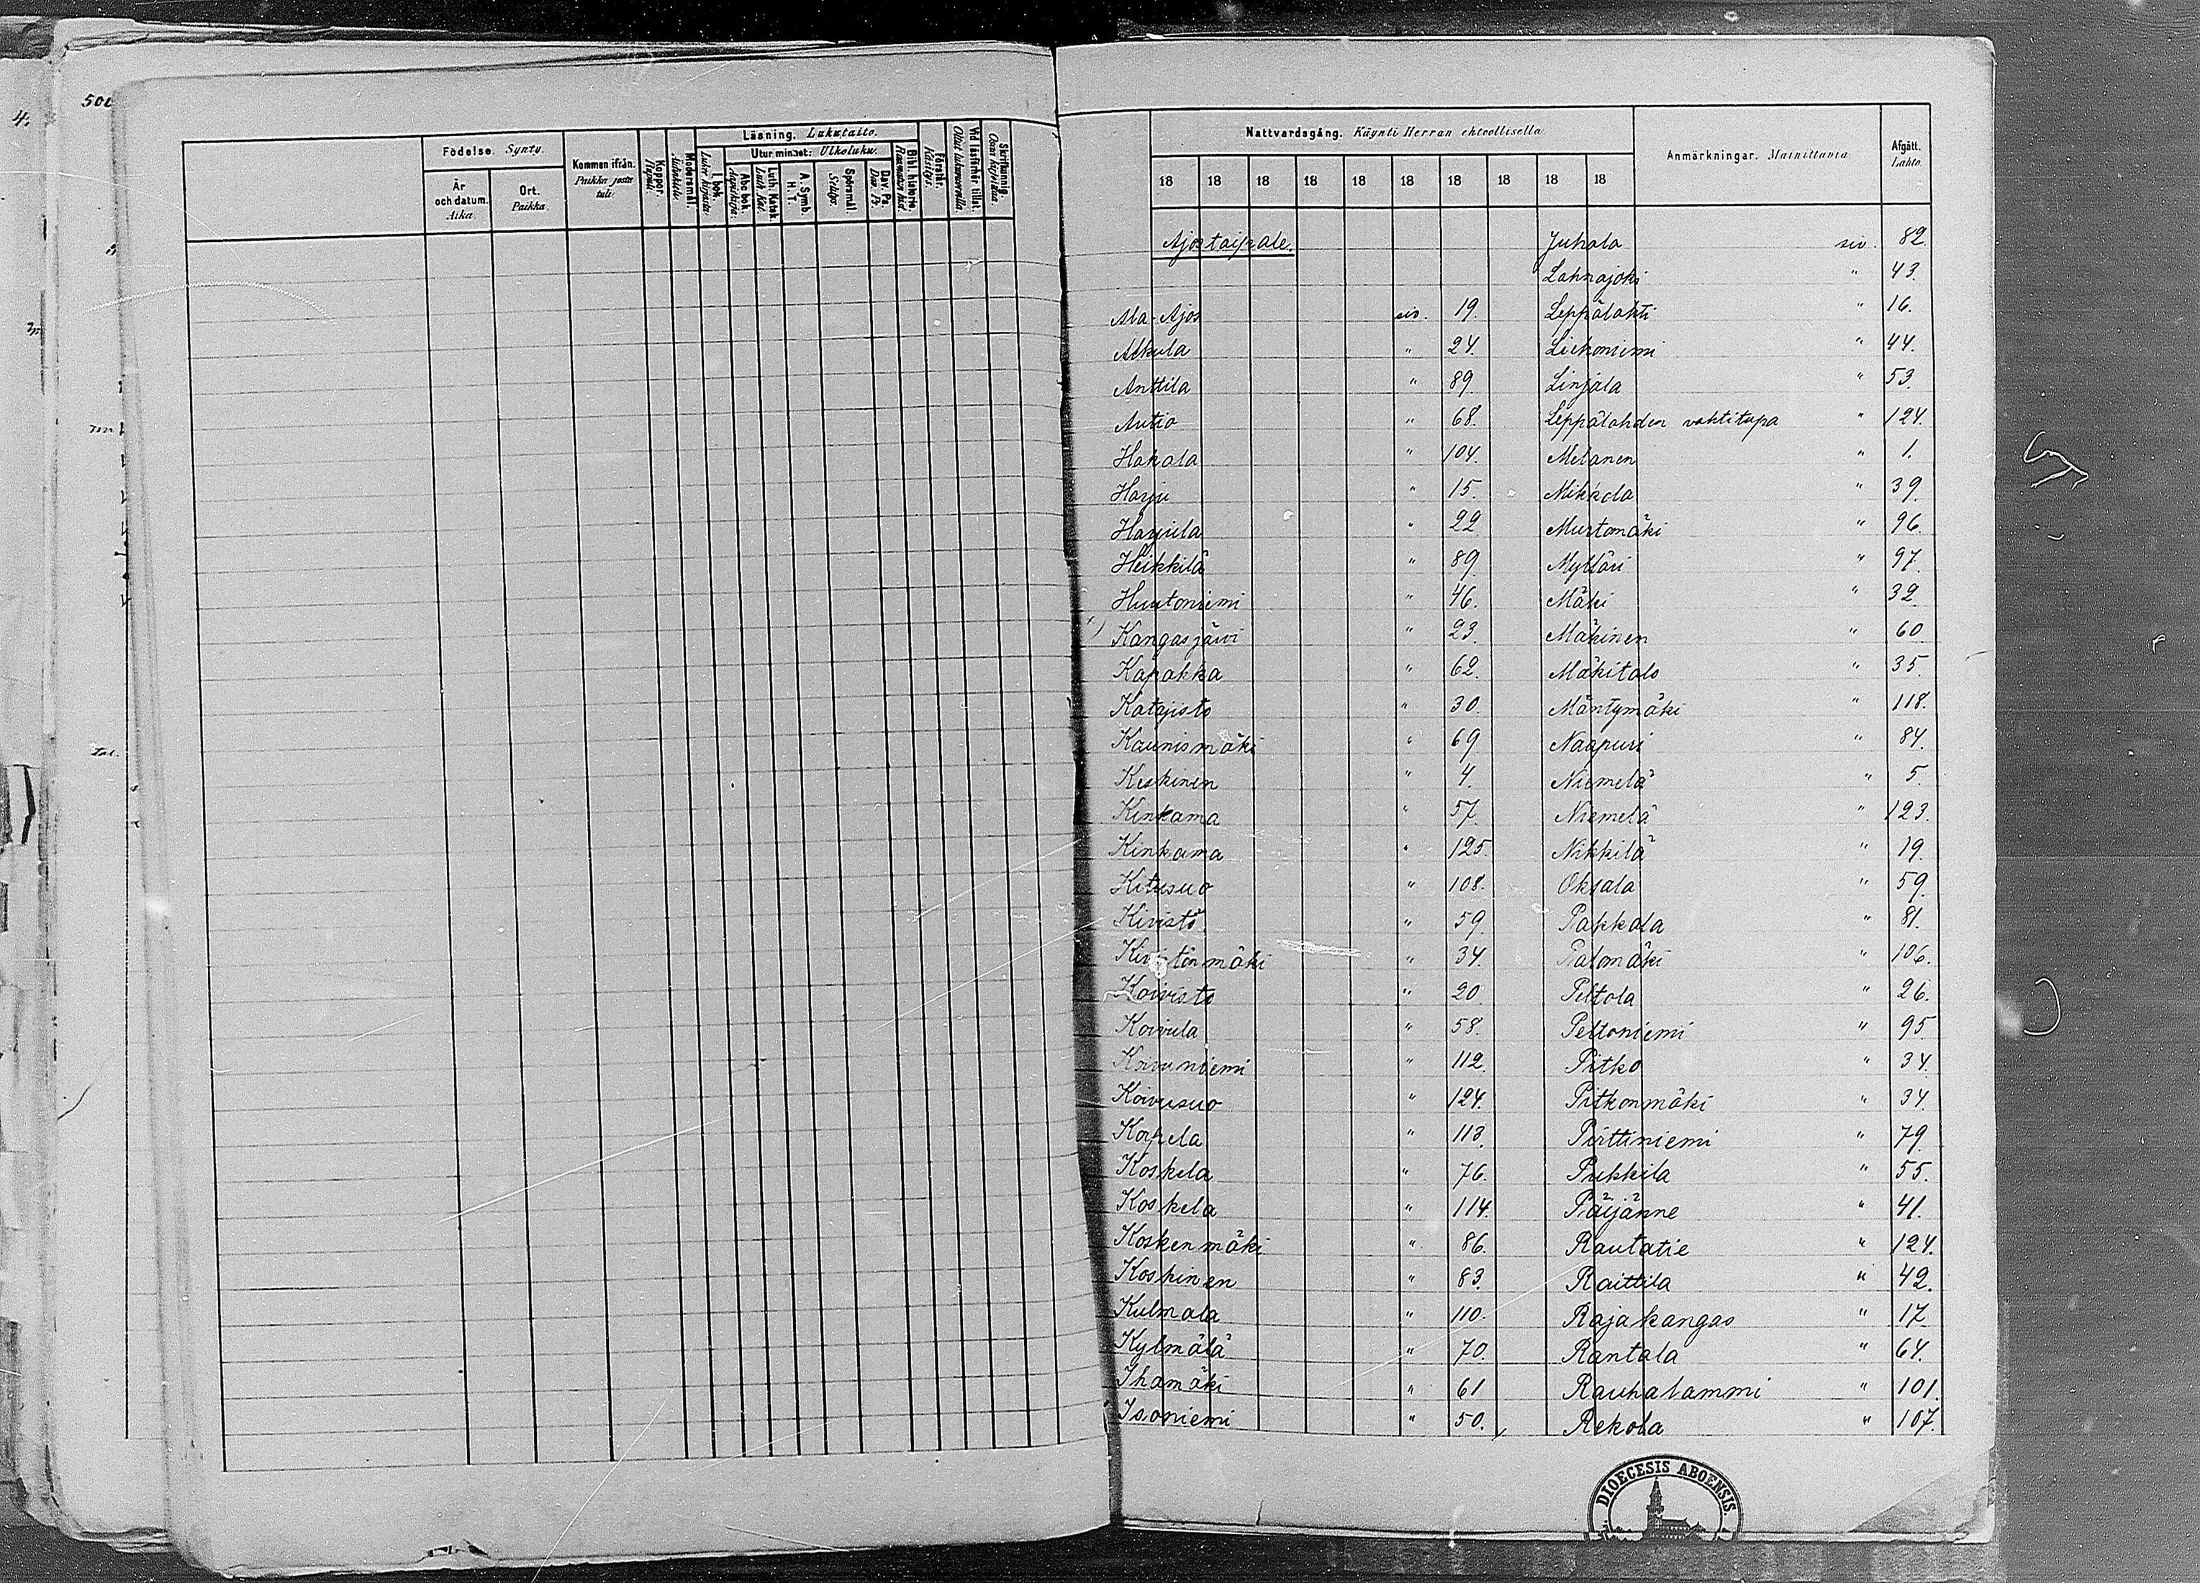 500
4.
Födelse. Synty.
År och datum. Aika.
Ort. Paikka.
Kommen ifrån. Paikka josta tuli.
Koppor. Rupuli.
Modersmål. Äidinkieli.
Läsning. Lukutaito.
I bok. Luku kirjasta.
Utur minnet: Ulkoluku.
Abc bok. Aapiskirja.
Luth. Katek. Luth. Kat.
A. Symb. H. T.
Spörsmål. Selitys.
Dav. Ps. Dav. Ps.
Bibl. historia. Raamatun hist.
Förstår. Käsitys.
Vid läsförhör tillst. Ollut lukuvuorolla.
Skriftkunnig. Osaa kirjoittaa.
Nattvardsgång. Käynti Herran ehtoollisella.
18 18 18 18 18 18 18 18 18 18
Anmärkningar. Mainittavia.
Afgått. Lähtö.
Ajostaipale. Juhola siv. 82.
Lahnajoki " 43.
Ala-Ajos siv. 19. Leppälahti " 16.
Alkula " 24. Liekoniemi " 44.
Anttila " 89. Linjala " 53.
Autio " 68. Leppälahden vahtitupa " 124.
Hakala " 104. Melanen " 1.
Harju " 15. Mikkola " 39.
Harjula " 22. Murtomäki " 96.
Heikkilä " 89. Mylläri " 97.
Huutoniemi " 46. Mäki " 32.
Kangasjärvi " 23. Mäkinen " 60
Kapakka " 62. Mäkitalo " 35
Katajisto " 30. Mäntymäki " 118.
Kaunismäki " 69 Naapuri " 84.
Keskinen " 4. Niemelä " 5.
Kinkama " 57. Niemelä " 123.
Kinkama " 125. Nikkilä " 19.
Kitusuo " 108. Oksala " 59.
Kivistö " 59. Pakkala " 81.
Kivistönmäki " 34. Palomäki " 106.
Koivisto " 20. Peltola " 26.
Koivula " 58. Peltoniemi " 95
Koivuniemi " 112. Pitko " 34.
Koivusuo " 124. Pitkonmäki " 34.
Korpela " 113. Pirttiniemi " 79.
Koskela " 76. Pukkila " 55.
Koskela " 114. Päijänne " 41.
Koskenmäki " 86. Rautatie " 124.
Koskinen " 83. Raittila " 42.
Kulmala " 110. Rajakangas " 17.
Kylmälä " 70. Rantala " 64.
Ihamäki " 61 Rauhalammi " 101.
Isoniemi " 50. Rekola " 107.
DIOECESIS ABOENSIS.